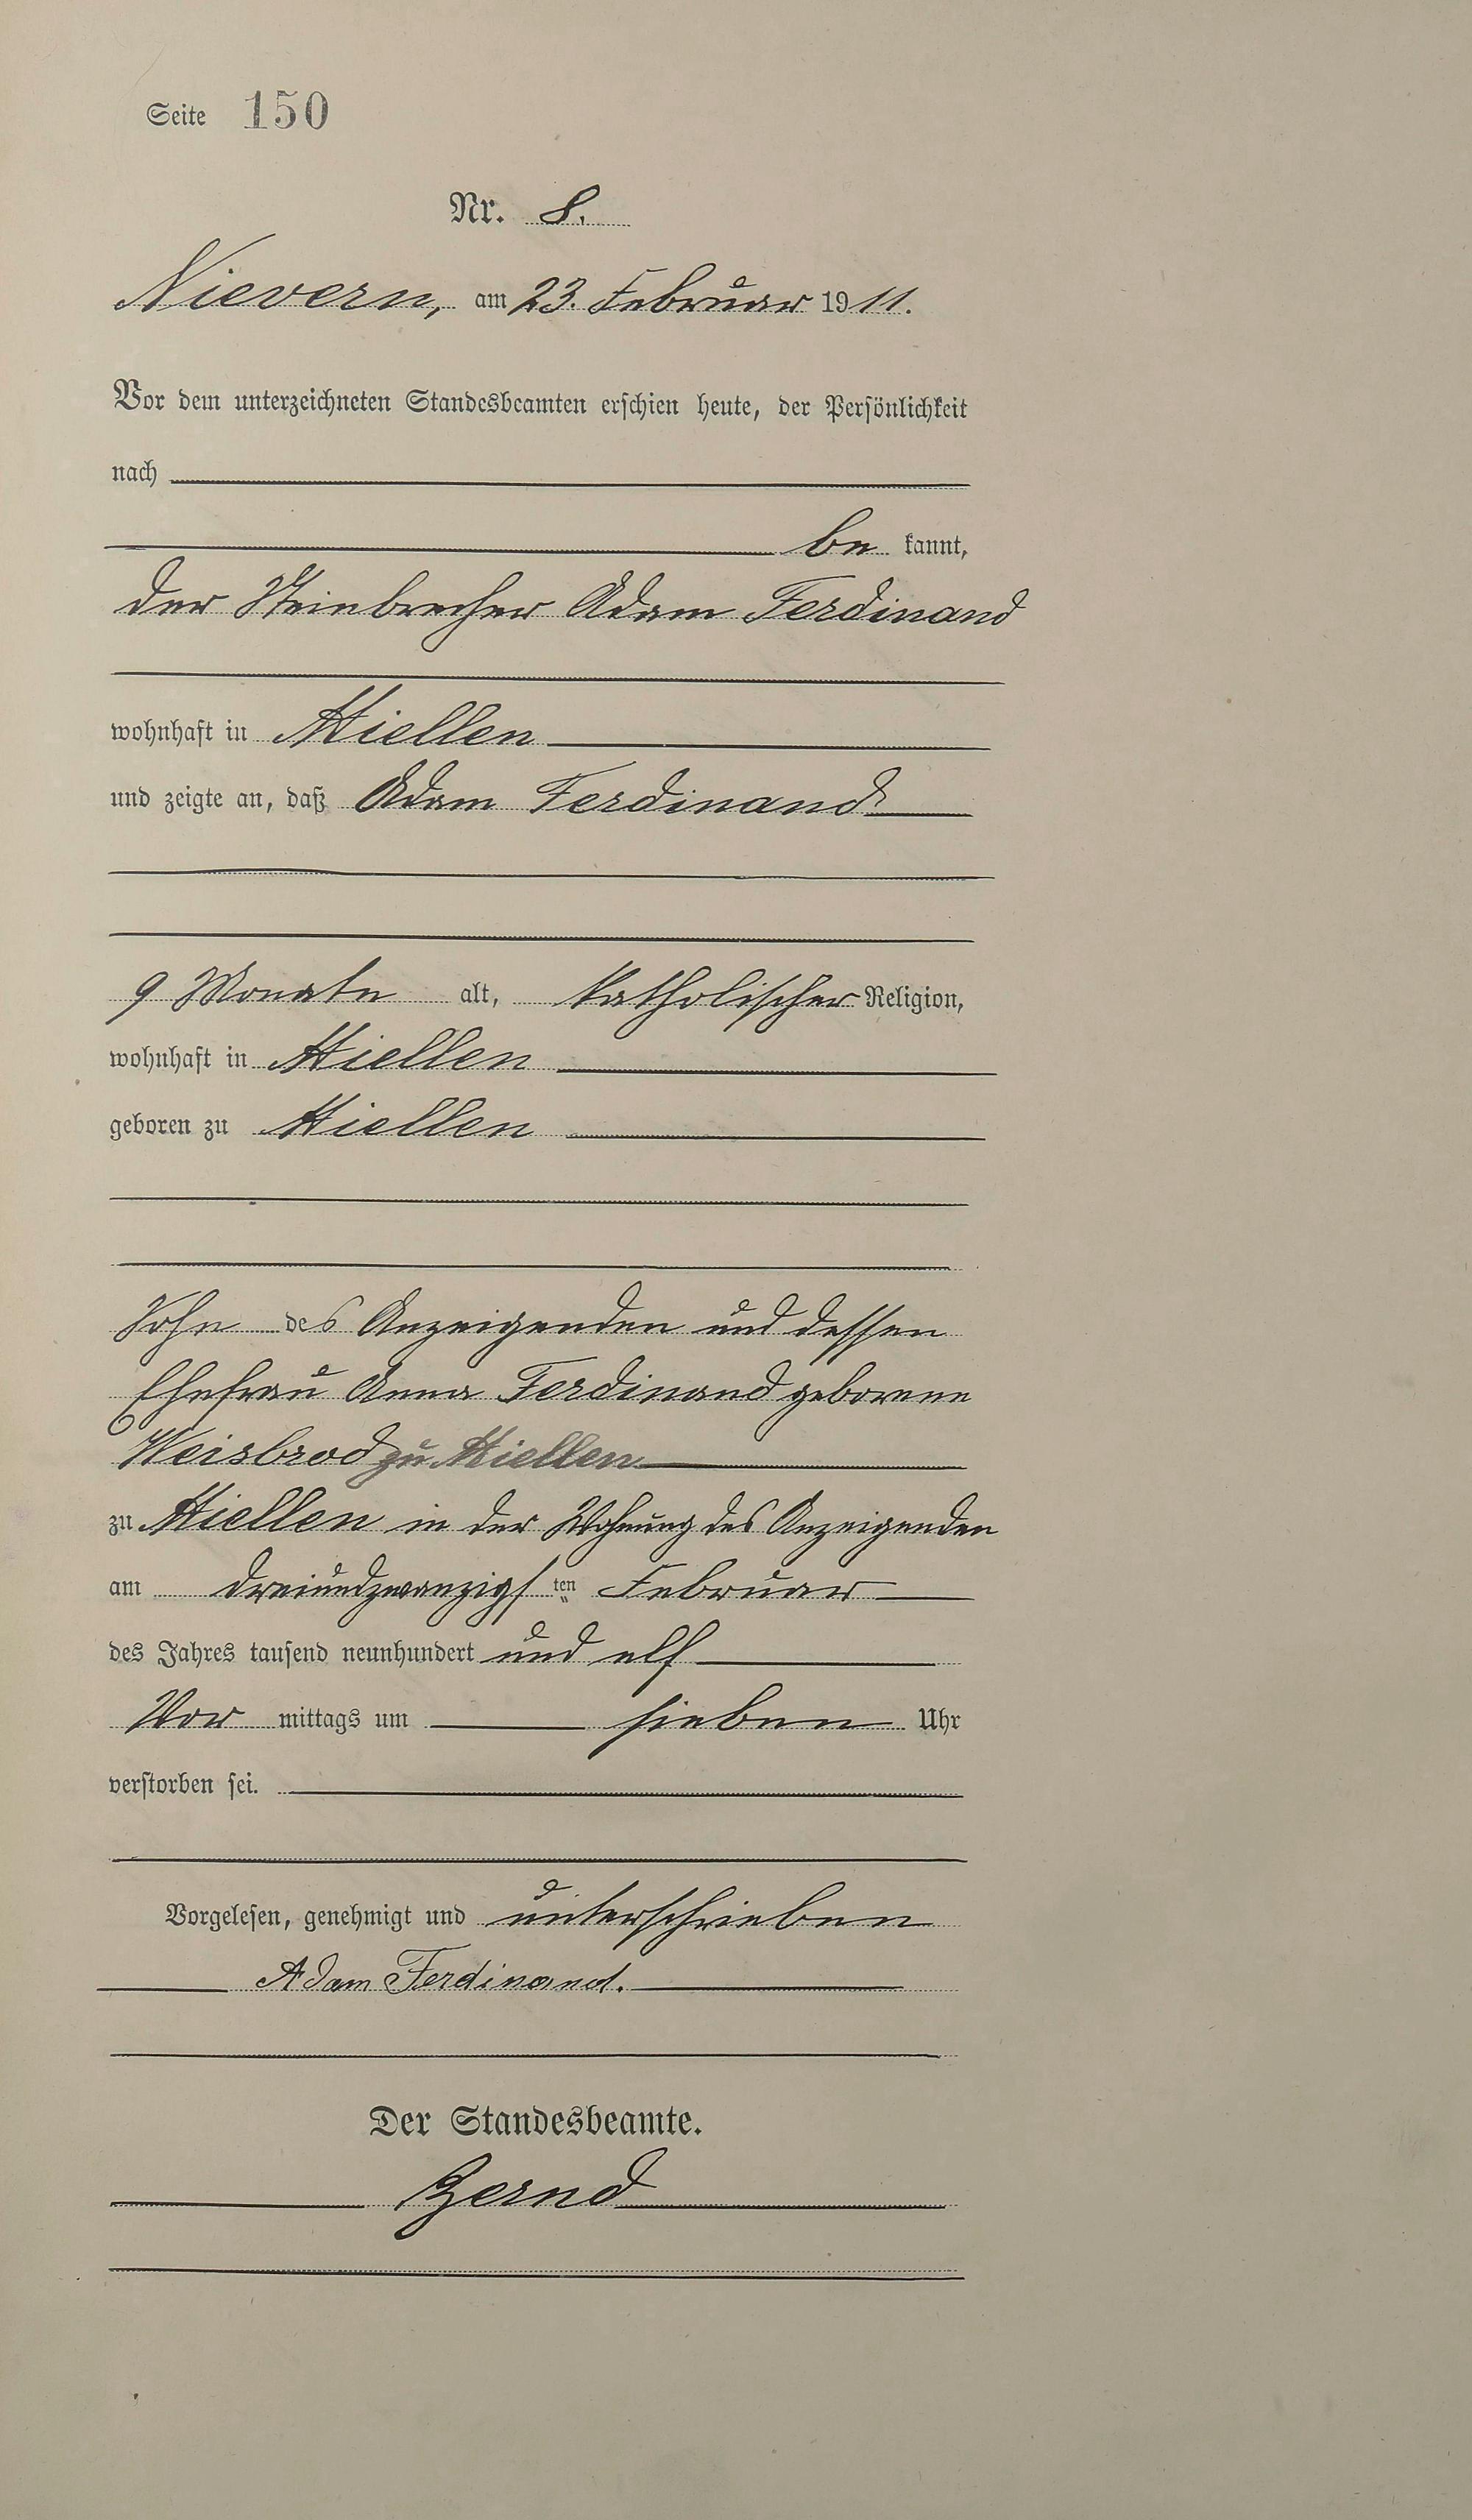 Seite 150
Nr. 8.
Nievern, am 23. Februar 1911.
Vor dem unterzeichneten Standesbeamten erschien heute, der Persönlichkeit
nach
be kannt,
der Steinbrecher Adam Ferdinand
wohnhaft in Miellen
und zeigte an, daß Adam Ferdinand
9 Monate alt, katholischer Religion,
wohnhaft in Miellen
geboren zu Miellen
Sohn des Anzeigenden und dessen
Ehefrau Anna Ferdinand geborene
Weisbrod zu Miellen
zu Miellen in der Wohnung des Anzeigenden
am dreiundzwanzigsten Februar
des Jahres tausend neunhundert und elf
Vor mittags um sieben Uhr
verstorben sei.
Vorgelesen, genehmigt und unterschrieben
Adam Ferdinand.
Der Standesbeamte.
Zernd